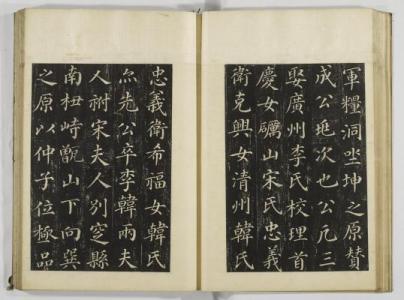 軍糧洞坐坤之原贊
成公垗次也公凡三
娶廣州李氏校理首
慶女礪山宋氏忠義
衛克興女清州韓氏
忠義衛希福女韓氏
亦先公卒李韓兩夫
人祔宋夫人別窆縣
南杻峙甑山下向巽
之原以仲子位極品